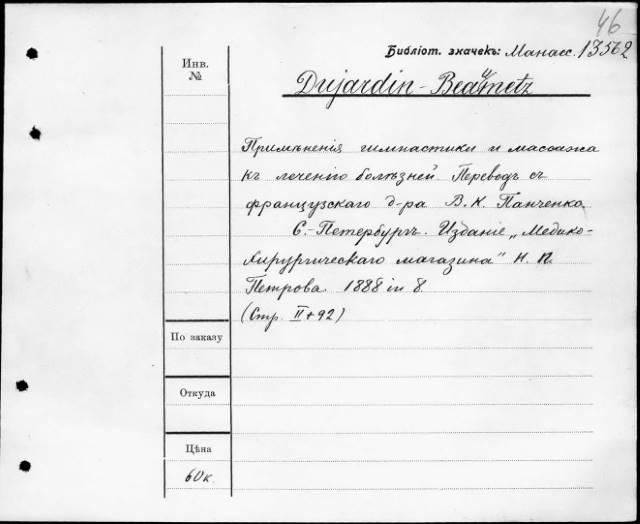 46
Библіот. значекъ: Манасс. 13562
Инв.
№
Dujardin-Beaumetz
Примѣненія гимнастики и массажа
къ леченію болѣзней. Переводъ съ
французскаго д-ра В. К. Панченко.
С.-Петербургъ. Изданіе „Медико-
хирургическаго магазина" Н. П.
Петрова. 1888 in 8.
(Стр. II+92)
По заказу
Откуда
Цѣна
60к.